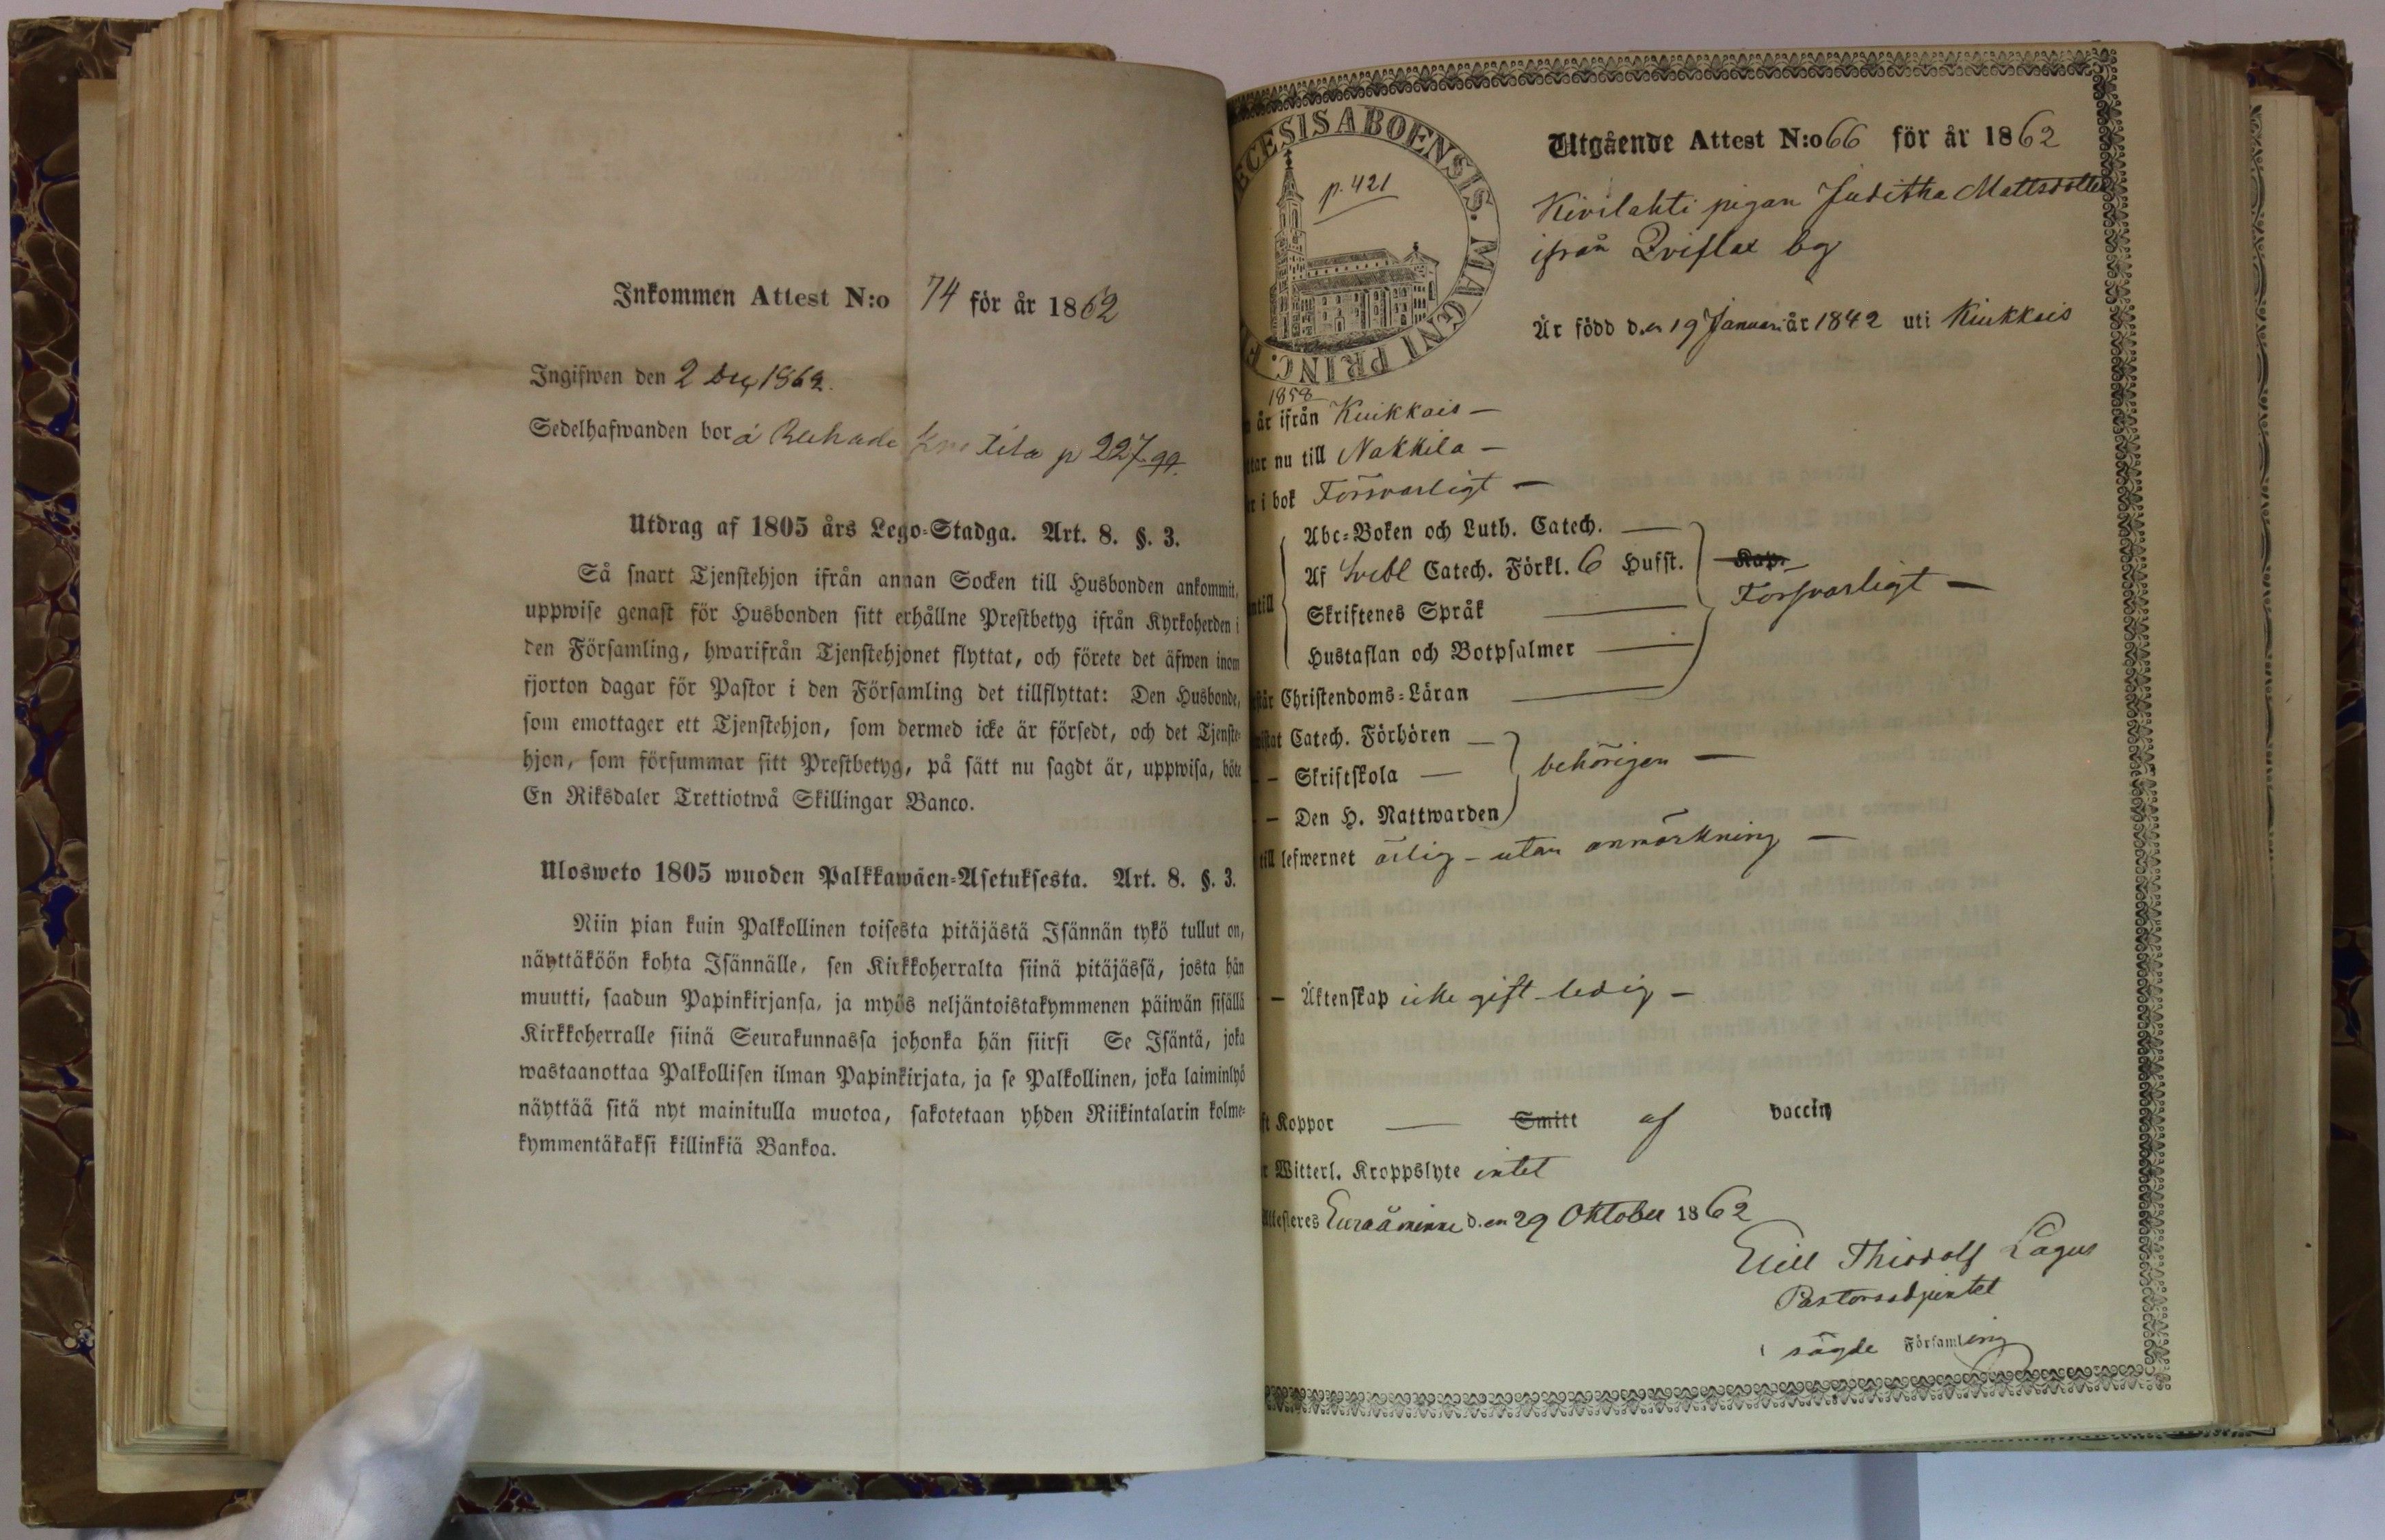 Inkommen Attest N:o 74 för år 1862
Ingifwen den 2 1862.
Sedelhafwanden bor å p 227
Utdrag af 1805 års Lego-Stadga. Art. 8. §. 3.
Så snart Tjenstehjon ifrån annan Socken till Husbonden ankommit,
uppwise genast för Husbonden sitt erhållne Prestbetyg ifrån Kyrkoherden i
den Församling, hwarifrån Tjenstehjonet flyttat, och förete det äfwen inom
fjorton dagar för Pastor i den Församling det tillflyttat: Den Husbonde,
som emottager ett Tjenstehjon, som dermed icke är försedt, och det Tjenste-
hjon, som försummar sitt Prestbetyg, på sätt nu sagdt är, uppwisa, böte
En Riksdaler Trettiotwå Skillingar Banco.
Ulosweto 1805 wuoden Palkkawäen-Asetuksesta. Art. 8. §. 3.
Niin pian kuin Palkollinen toisesta pitäjästä Isännän tykö tullut on,
näyttäköön kohta Isännälle, sen Kirkkoherralta siinä pitäjässä, josta hän
muutti, saadun Papinkirjansa, ja myös neljäntoistakymmenen päiwän sisällä
Kirkkoherralle siinä Seurakunnassa johonka hän siirsi Se Isäntä, joka
wastaanottaa Palkollisen ilman Papinkirjata, ja se Palkollinen, joka laiminlyö
näyttää sitä nyt mainitulla muotoa, sakotetaan yhden Riikintalarin kolme-
kymmentäkaksi killinkiä Bankoa.
ECESIS ABOENSIS. MAGNI PRINC. F
p. 421
Utgående Attest N:o 66 för år 1862
Kivilahti pigan Juditha Mattsdotter
ifrån Qviflax by
Är född d.en 19 Januari år 1842 uti Kiukkais
1858
år ifrån Kiukkais —
tar nu till Nakkila —
r i bok Försvarligt —
Abc-Boken och Luth. Catech. —
Af Svebl Catech. Förkl. 6 Hufst. Kap.
ntill Skriftenes Språk — Försvarligt —
Hustaflan och Botpsalmer —
står Christendoms-Läran —
istat Catech. Förhören —
— Skriftskola — behörigen —
— Den H. Nattwarden
till lefwernet ärlig – utan anmärkning —
— Äktenskap icke gift – ledig —
ft Koppor — Smitt af vaccin
r Witterl. Kroppslyte intet
Attesteres Euraåminne d.en 29 Oktober 1862
Thiodolf Lagus
Pastorsadjunktet
i sagde Församling